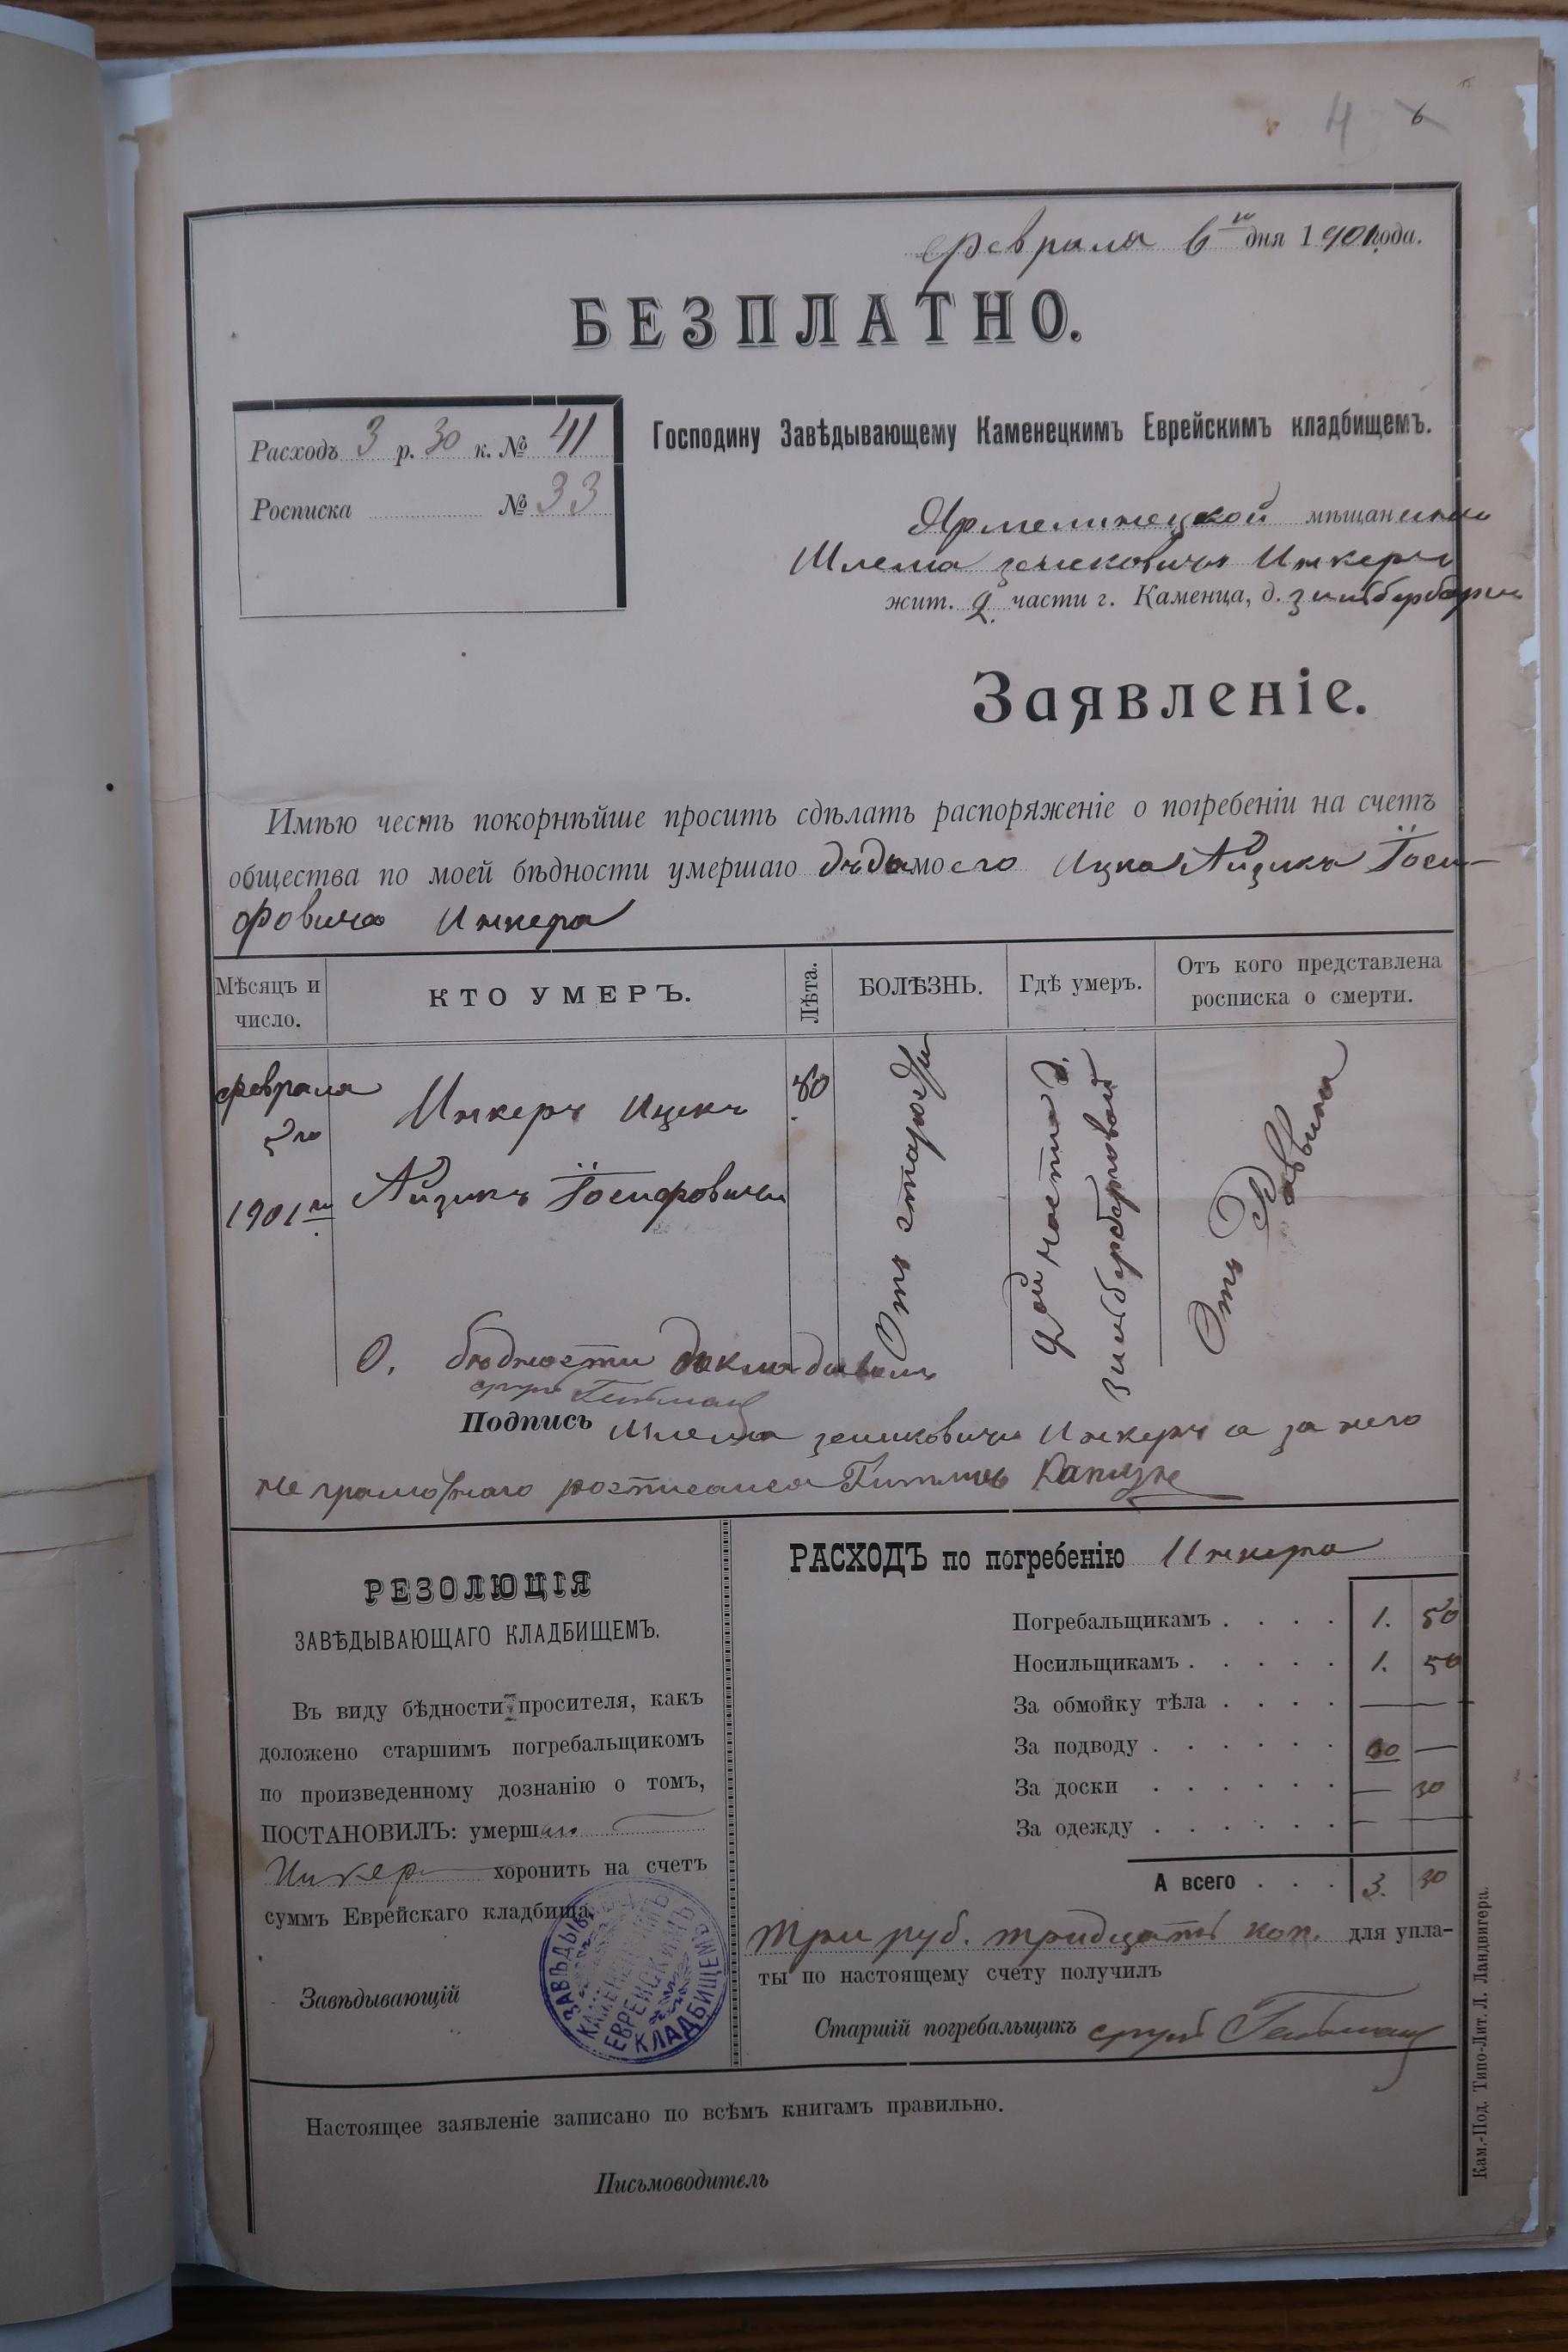 4 6
Февраля 6го дня 1901 года.
БЕЗПЛАТНО.
Расходъ 3 р. 30 к. № 41
Росписка № 33
Господину Завѣдывающему Каменецкимъ Еврейскимъ кладбищемъ.
Ярмелинецкой мѣщанинъ
Шлема Инкеръ
жит. 2 части г. Каменца, д.
Заявленіе.
Имѣю честь покорнѣйше просить сдѣлать распоряженіе о погребеніи на счетъ
общества по моей бѣдности умершаго дѣда моего Ицка Айзика Іоси-
фовича Инкера
Мѣсяцъ и число.
КТО УМЕРЪ.
Лѣта.
БОЛѢЗНЬ.
Гдѣ умеръ.
Отъ кого представлена росписка о смерти.
Февраля 5го 1901го
Инкеръ Ицекъ
Айзикъ Іосифовичъ
80
Отъ старости
2ой части д.
Отъ Раввина
О бѣдности докладывалъ
Подпись Шлема Инкеръ а за него
не грамотнаго росписался
РЕЗОЛЮЦІЯ
ЗАВѢДЫВАЮЩАГО КЛАДБИЩЕМЪ.
Въ виду бѣдности просителя, какъ
доложено старшимъ погребальщикомъ
по произведенному дознанію о томъ,
ПОСТАНОВИЛЪ: умершаго
Инкера хоронить на счетъ
суммъ Еврейскаго кладбища.
Завѣдывающій
ЗАВѢДЫВАЮЩІЙ КАМЕНЕЦКИМЪ ЕВРЕЙСКИМЪ КЛАДБИЩЕМЪ
РАСХОДЪ по погребенію Инкера
Погребальщикамъ . . . . 1. 50
Носильщикамъ . . . . . 1. 50
За обмойку тѣла . . . . — —
За подводу . . . . . . —
За доски . . . . . . — 30
За одежду . . . . . . — —
А всего . . . 3. 30
Три руб. тридцать коп. для упла-
ты по настоящему счету получилъ
Старшій погребальщикъ
Настоящее заявленіе записано по всѣмъ книгамъ правильно.
Письмоводитель
Кам.-Под. Типо-Лит. Л. Ландвигера.